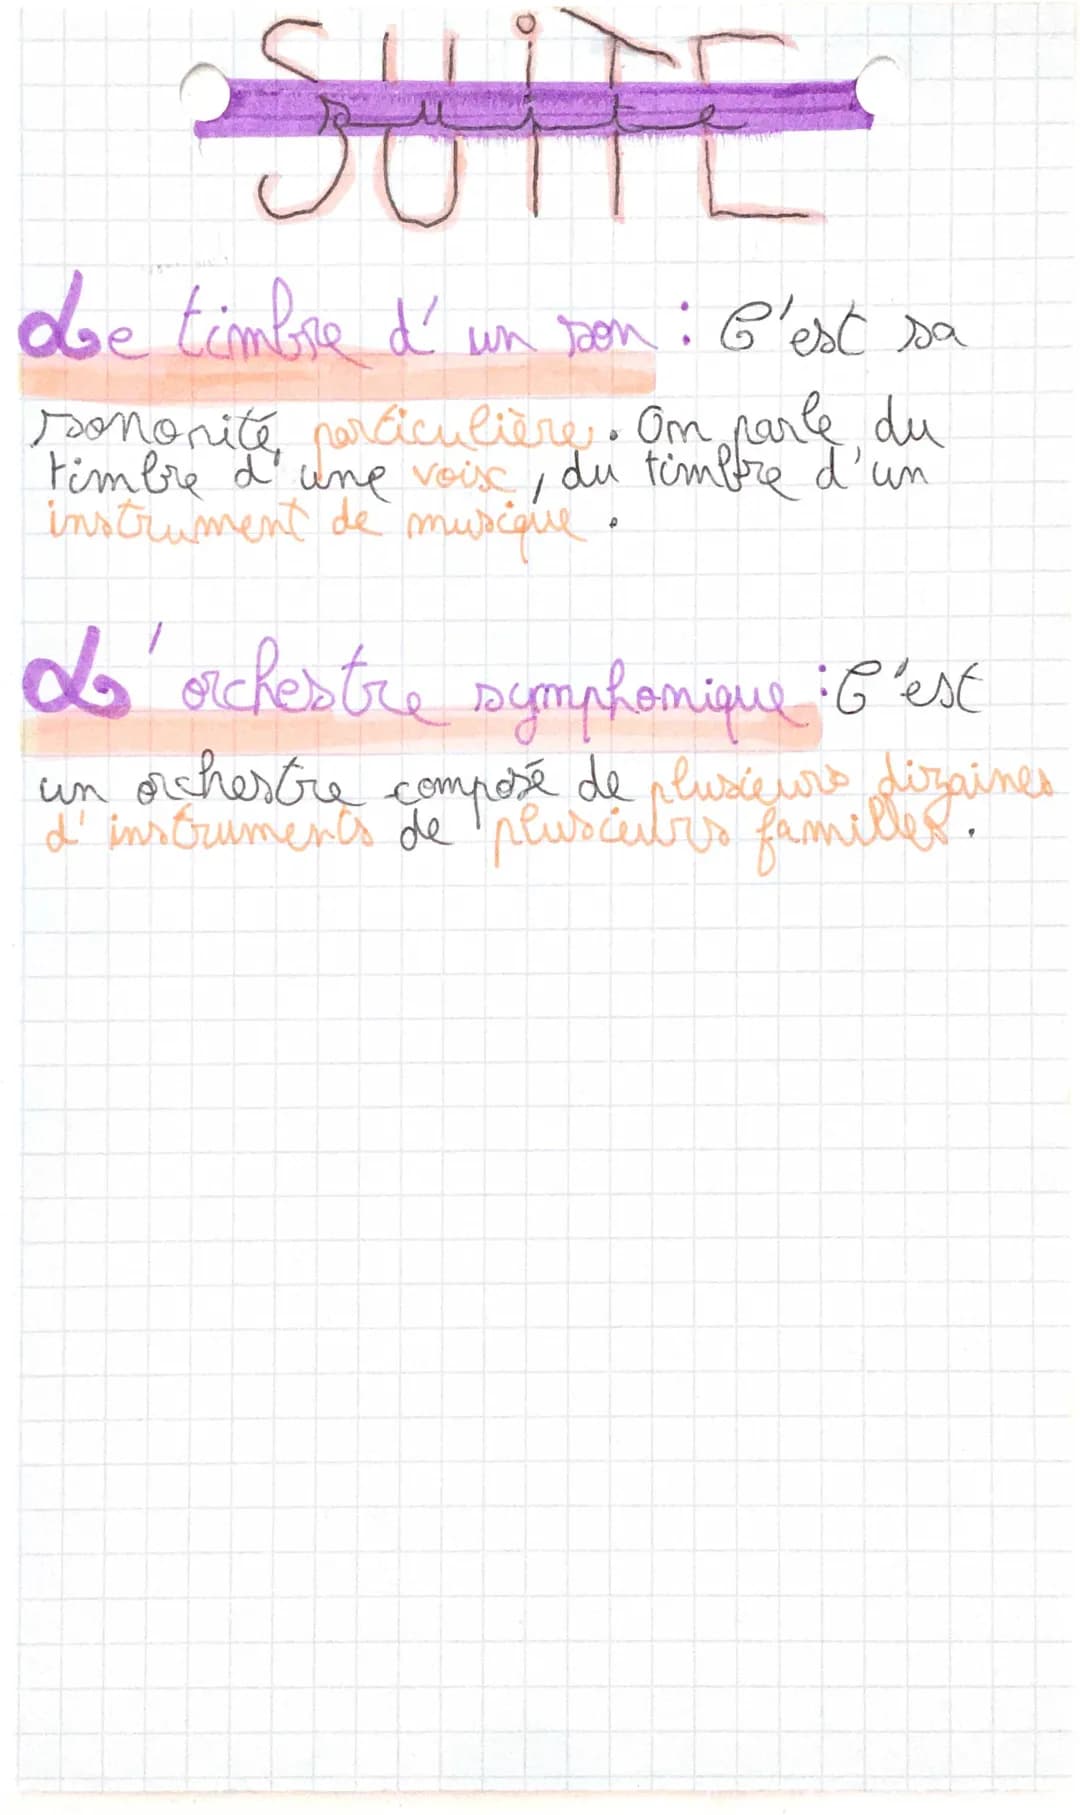 SUITE
suite
Le timbre d'un son : C'est sa
sonorité particulière. On parle du
timbre d'une voix, du timbre d'un
instrument de musique.
L'orchestre symphonique : C'est
un orchestre composé de plusieurs dizaines
d'instruments de plusieurs familles.